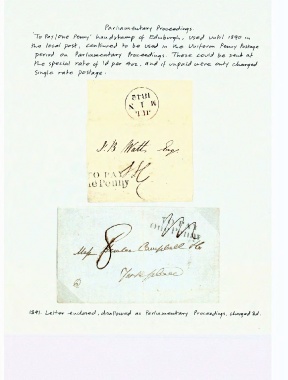 Parliamentary Proceedings.
'To Pay/One Penny' handstamp of Edinburgh, used until 1840 in
the local post, continued to be used in the Uniform Penny Postage
period on Parliamentary Proceedings. These could be sent at
the special rate of 1d per 4oz, and if unpaid were only charged
single rate postage.
J. B. Watt Esq
TO PAY
ne Penny
8
Campbell & Co
York place
1843 Letter enclosed, disallowed as Parliamentary Proceedings, charged 8d.